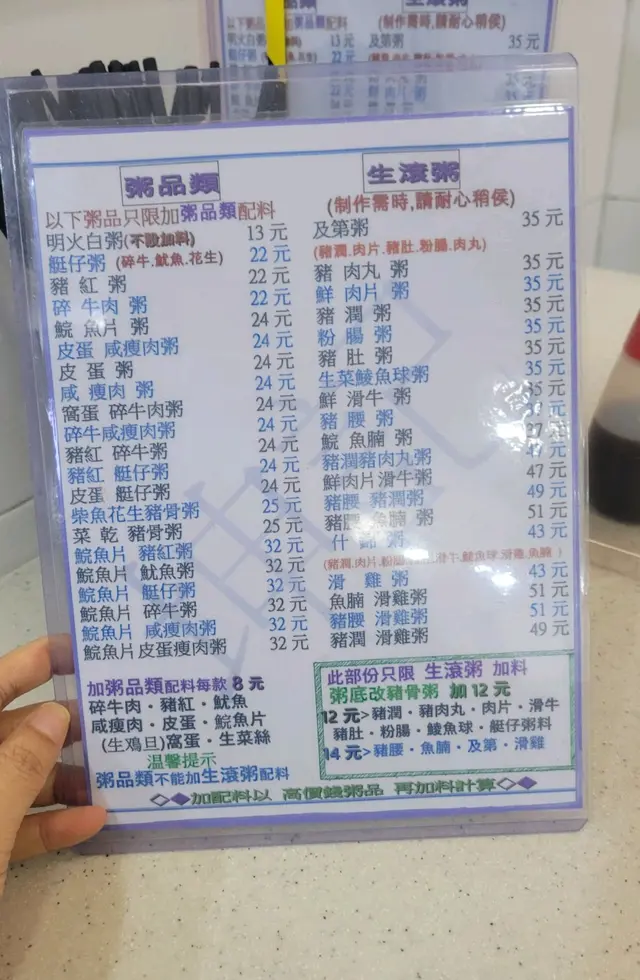 以下粥品只限加粥品類配料
明火白粥
13 元
22 元
生滾粥
(制作需時,請耐心稍侯)
及第粥
35 元
粥品類
以下粥品只限加粥品類配料
明火白粥(不設加料) 13 元
艇仔粥 (碎牛.魷魚.花生) 22 元
豬 紅 粥 22 元
碎 牛肉 粥 22 元
鯇 魚片 粥 24 元
皮蛋 咸瘦肉粥 24 元
皮 蛋 粥 24 元
咸 瘦肉 粥 24 元
窩蛋 碎牛肉粥 24 元
碎牛咸瘦肉粥 24 元
豬紅 碎牛粥 24 元
豬紅 艇仔粥 24 元
皮蛋 艇仔粥 24 元
柴魚花生豬骨粥 25 元
菜 乾 豬骨粥 25 元
鯇魚片 豬紅粥 32 元
鯇魚片 魷魚粥 32 元
鯇魚片 艇仔粥 32 元
鯇魚片 碎牛粥 32 元
鯇魚片 咸瘦肉粥 32 元
鯇魚片皮蛋瘦肉粥 32 元
加粥品類配料每款 8 元
碎牛肉・豬紅・魷魚
咸瘦肉・皮蛋・鯇魚片
(生鳮旦)窩蛋・生菜絲
温馨提示
粥品類不能加生滾粥配料
生滾粥
(制作需時,請耐心稍侯)
及第粥 35 元
(豬潤.肉片.豬肚.粉腸.肉丸)
豬 肉丸 粥 35 元
鮮 肉片 粥 35 元
豬 潤 粥 35 元
粉 腸 粥 35 元
豬 肚 粥 35 元
生菜鯪魚球粥 35 元
鮮 滑牛 粥 35 元
豬 腰 粥
鯇 魚腩 粥
豬潤豬肉丸粥 47 元
鮮肉片滑牛粥 47 元
豬腰 豬潤粥 49 元
豬腰 魚腩 粥 51 元
什 錦 粥 43 元
(豬潤.肉片.粉腸.滑牛.鯪魚球.滑雞.魚腩)
滑 雞 粥 43 元
魚腩 滑雞粥 51 元
豬腰 滑雞粥 51 元
豬潤 滑雞粥 49 元
此部份只限 生滾粥 加料
粥底改豬骨粥 加 12 元
12 元>豬潤・豬肉丸・肉片・滑牛
豬肚・粉腸・鯪魚球・艇仔粥料
14 元>豬腰・魚腩・及第・滑雞
◇◆加配料以 高價錢粥品 再加料計算◇◆